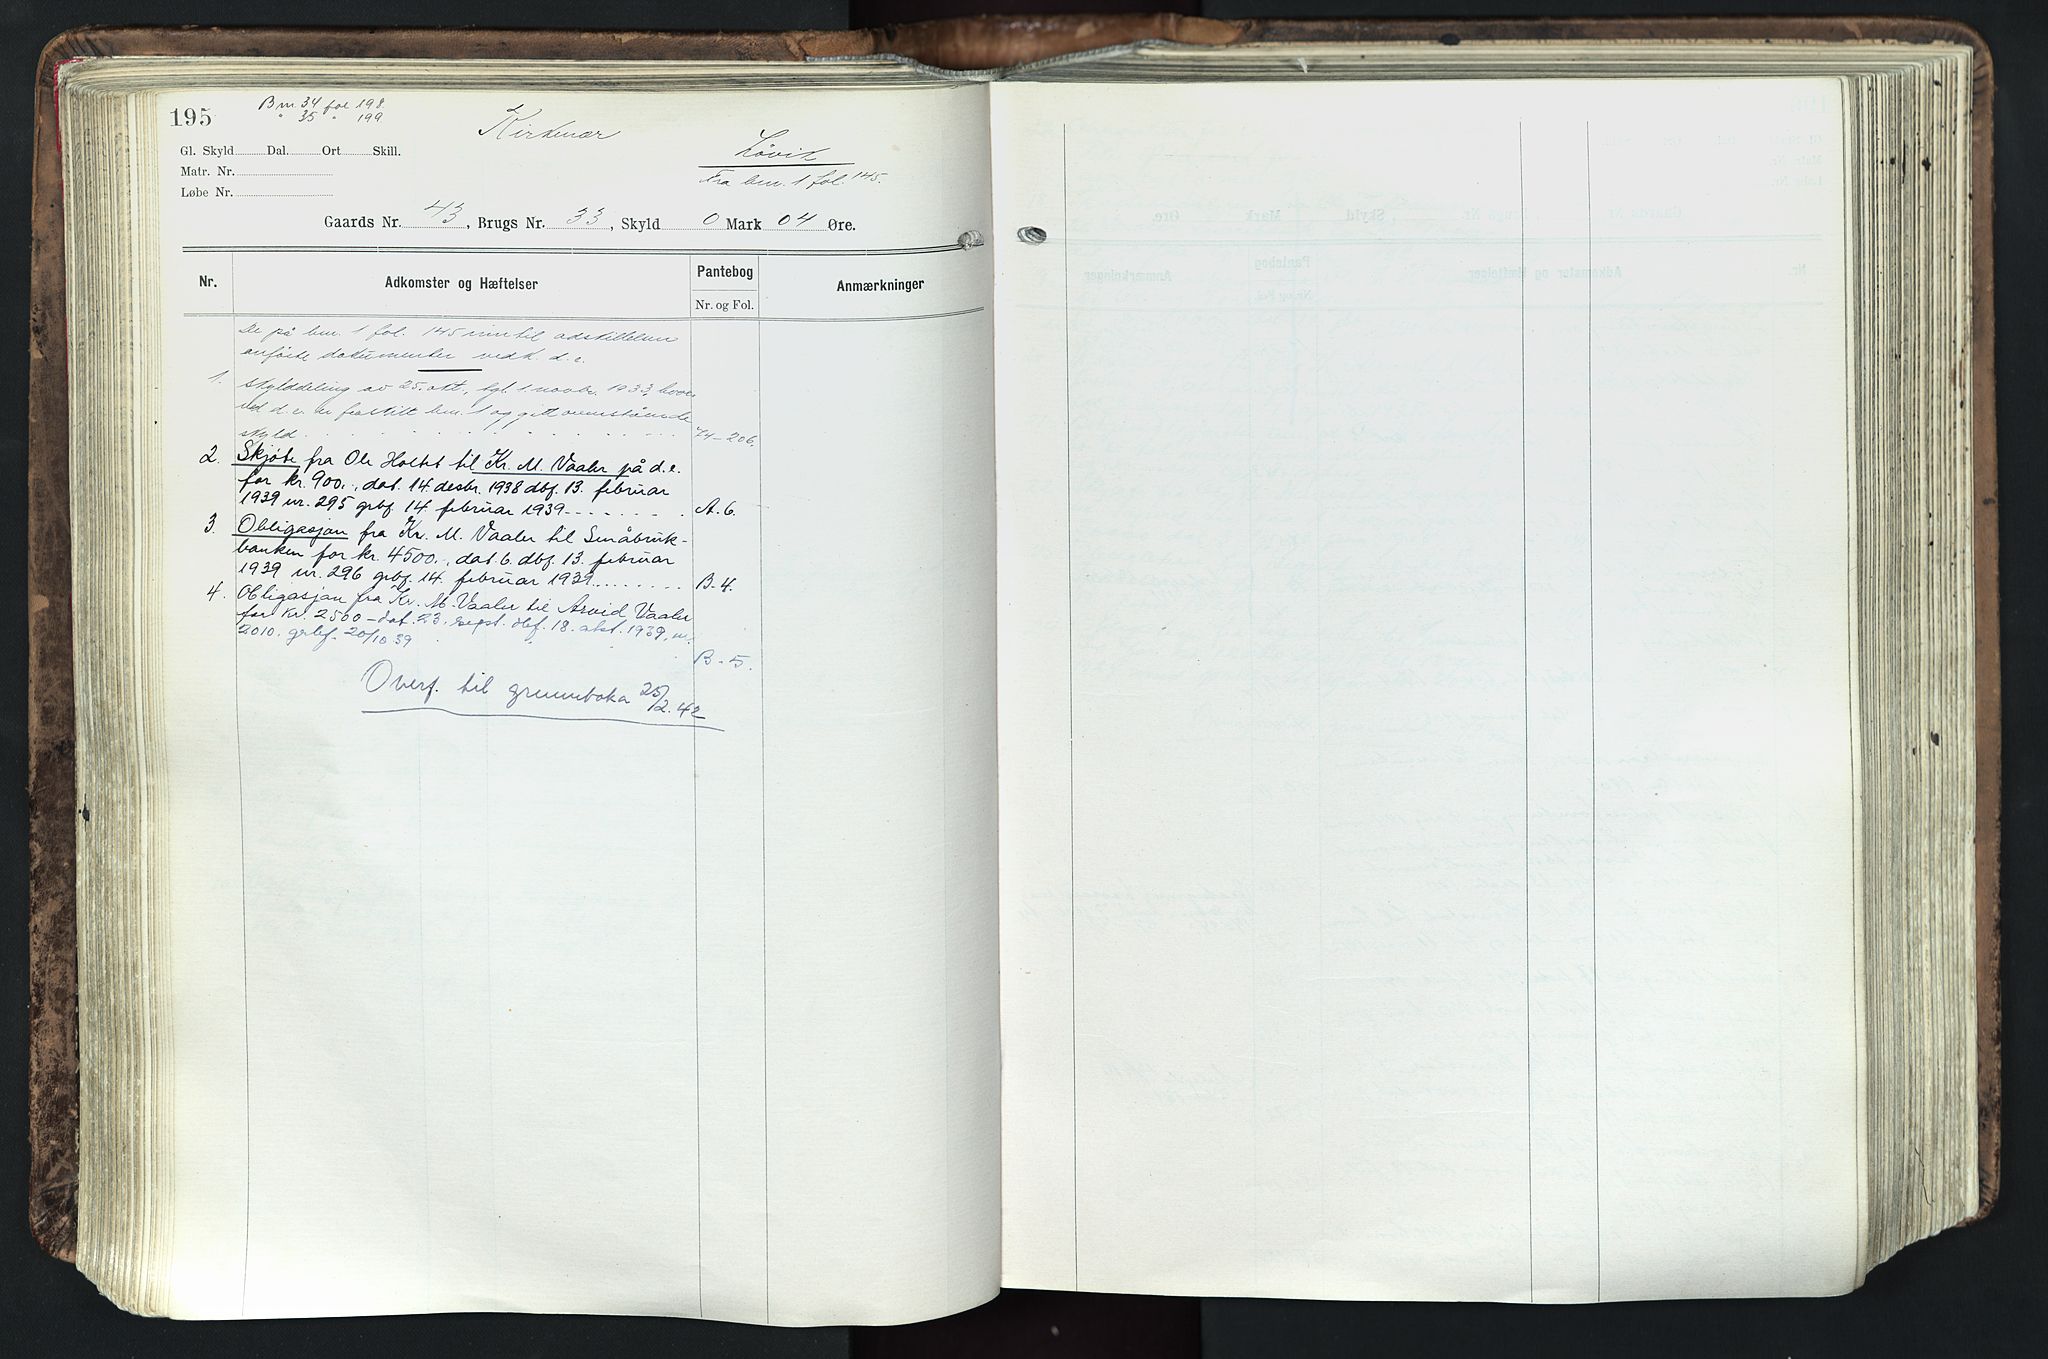 195
Bnr. 34 fol 198
" 35 " 199
Kirkenær
Gl. Skyld Dal. Ort Skill.
Matr. Nr.
Løbe Nr.
Løvik
Fra bnr. 1 fol. 145.
Gaards Nr. 43, Brugs Nr. 33, Skyld 0 Mark 04 Øre.
Nr. Adkomster og Hæftelser Pantebog Anmærkninger
Nr. og Fol.
De på bnr. 1 fol. 145 inntil adskillelsen
anførte dokumenter vedk. d.e.
1. Skylddeling av 25. okt., tgl. 1 novbr. 1933, hvor-
ved d.e. er fraskilt bnr. 1 og gitt ovenstående
skyld 74-206.
2. Skjøte fra Ole Holtet til Kr. M. Vaaler på d.e.
for kr. 900., dat. 14. desbr. 1938 dbf. 13. februar
1939 nr. 295 grbf. 14. februar 1939 A.6.
3. Obligasjon fra Kr. M. Vaaler til Småbruk-
banken for kr. 4500., dat. 6. dbf. 13. februar
1939 nr. 296 grbf. 14. februar 1939 B-4.
4. Obligasjon fra Kr. M. Vaaler til Arvid Vaaler
for kr. 2500 - dat. 23. sept. dbf. 18. okt. 1939, nr.
2010. grbf. 20/10 39
B-5.
Overf. til grunnboka 25/2.42